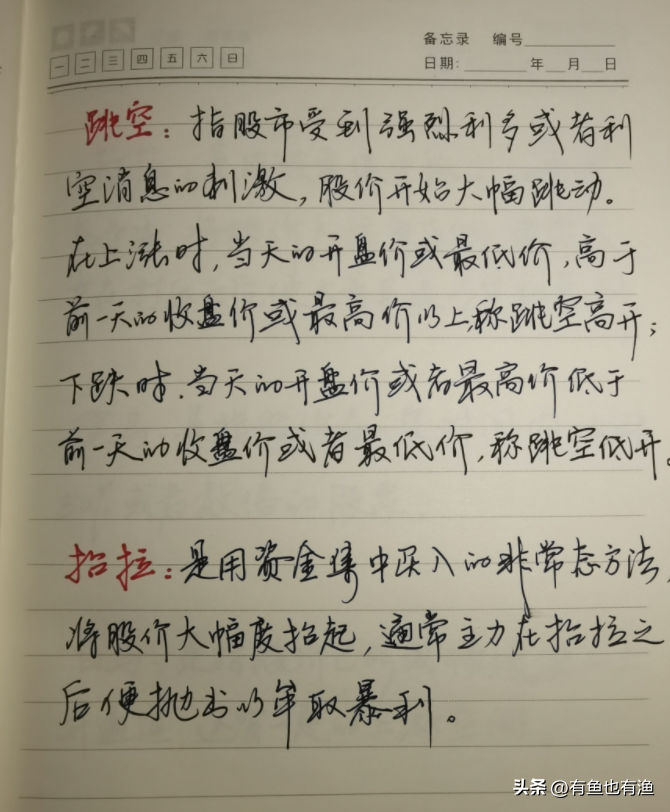 备忘录 编号
一 二 三 四 五 六 日
日期: 年 月 日
跳空：指股市受到强烈利多或者利
空消息的刺激，股价开始大幅跳动。
在上涨时，当天的开盘价或最低价，高于
前一天的收盘价或最高价以上，称跳空高开；
下跌时，当天的开盘价或者最高价低于
前一天的收盘价或者最低价，称跳空低开。
抬拉：是用资金集中买入的非常态方法，
将股价大幅度抬起，通常主力在抬拉之
后便抛出以牟取暴利。
头条 @有鱼也有渔